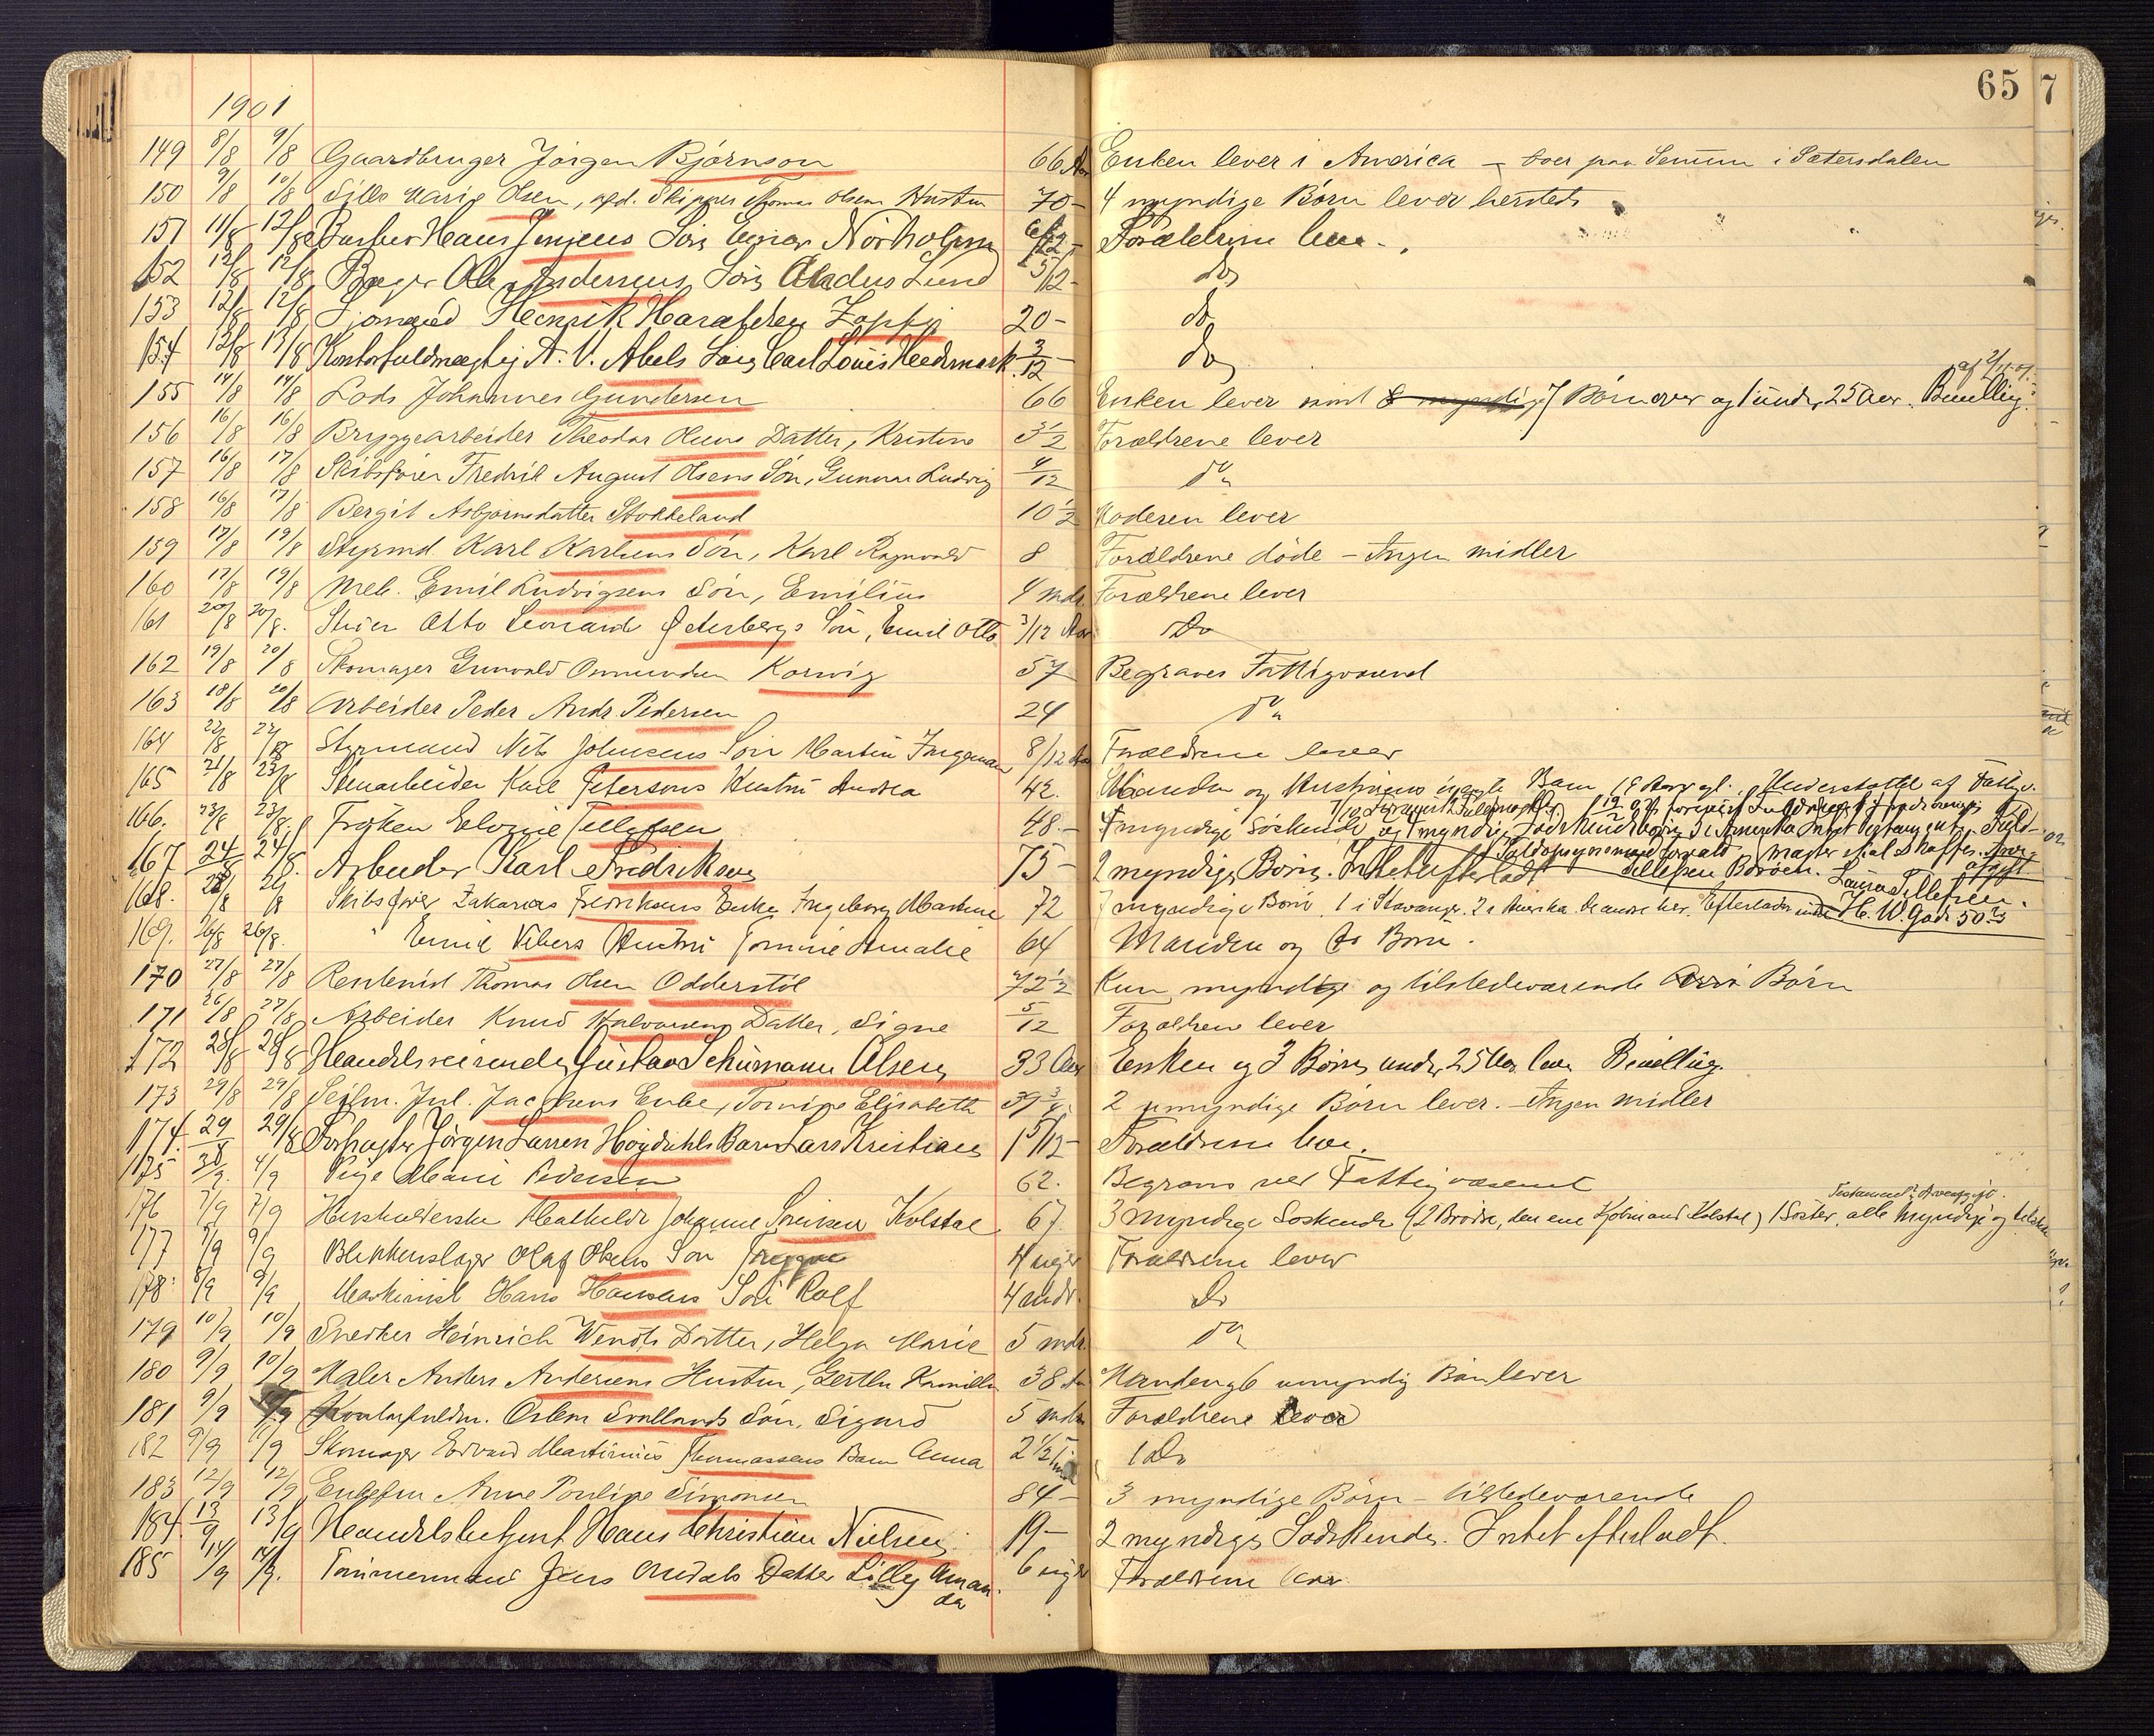 65 7
1901
149 8/8 9/8 Gaardbruger Jörgen Björnson 66 Aar Enken lever i America – boer paa Senum i Sætersdalen
150 9/8 10/8 Marie Olsen, afd. Skipper Thomas Olsens Hustru 70 – 4 myndige Börn lever hersteds
151 11/8 12/8 Barber Hans Jensens Sön Einar Norholm Forældrene lever.
152 12/8 12/8 Bager Ole Andersens Sön Lund 5/12 – do
153 12/8 12/8 Sjömand Henrik Haraldsen Zappfe 20 – do
154 12/8 13/8 Kontorfuldmægtig A. V. Abels Sön Carl Louis Hedemark 3/12 – do
155 14/8 14/8 Lods Johannes Gundersen 66 Enken lever samt 8 myndige 7 Börn over og 1 under 25 Aar. Bevilling. af 2/11 01.
156 16/8 16/8 Bryggearbeider Theodor Olsens Datter, Kristine 3 1/2 Forældrene lever
157 16/8 17/8 Skibsförer Fredrik August Olsens Sön, Gunnar Ludvig 4/12 do
158 16/8 17/8 Bergit Asbjörnsdatter Stokkeland 10 1/2 Moderen lever
159 17/8 19/8 Styrmd. Karl Karlsens Sön, Karl Ragnvald 8 Forældrene döde – Ingen midler
160 17/8 19/8 Mek. Emil Ludvigsens Sön, Emilius 4 mdr. Forældrene lever
161 20/8 20/8. Otto Leonard Österbergs Sön, Emil Otto 3/12 Aar Do
162 19/8 20/8 Skomager Gunvald Osmundsen Korsvig 57 Begraves Fattigvæsend
163 18/8 20/8 Arbeider Peder Andr. Pedersen 24 do
164 22/8 22/8 Styrmand Nils Johnsens Sön Martin Ingeman 8/12 Aar Forældrene lever
165 21/8 23/8 Stenarbeider Karl Petersens Hustru Andrea 42. Manden og Hustruens uægte Barn 19 Aar gl. Understöttet af Fattigv.
166. 23/8 23/8. Fröken Elovise Tellefsen 48. – 4 myndige Söskende og 4 myndige Södskendebörn i Amerika Intet Testament. Fuld-
magter skal skaffes.
Tellefsen Barboen. Laura Tellefsen.
167 24/8 24/8. Arbeider Karl Fredriksen 75 – 2 myndige Börn. Intet efterladt
168. 24/8 26/8 Skibsförer Zakarias Fredriksens Enke Ingeborg Martine 72 7 myndige Börn. 1 i Stavanger. 2 i Amerika de andre her. Efterlader intet H. W. Gade 50
169. 26/8 26/8. " Emil Vibers Hustru Tomine Amalie 64 Manden og to Börn.
170 27/8 27/8 Rentenist Thomas Olsen Odderstöl 72 1/2 Kun myndige og tilstedeværende Börn
171 26/8 27/8 Arbeider Knud Halvorsens Datter, Signe 5/12 Forældrene lever
172 28/8 28/8 Handelsreisende Gustav Schumann Olsen 33 Aar Enken og 3 Börn under 25 Aar lever Bevilling.
173 29/8 29/8 Seilm. Jul. Jacobsens Enke, Tomine Elisabeth 39 2 umyndige Börn lever. – Ingen midler
174. 29/8 29/8 Forpagter Jörgen Larsen Höydahls Barn Lars Kristian 1 5/12 – Forældrene lever.
175 30/8. 4/9 Pige Marie Pedersen 62. Begraves ved Fattigvæsenet
176 7/9 7/9 Husholderske Mathilde Johanne Sörensen Kolstad 67. 3 myndige Söskende (2 Brödre, den ene Kjöbmand Kolstad) 1 Söster, alle myndige og tilstede Testament: Arveafgift.
177 7/9 9/9 Blikkenslager Olaf Olsens Sön Trygve 4 uger Forældrene lever
178. 8/9 9/9 Maskinist Hans Hansens Sön Rolf 4 mdr. Do
179 10/9 10/9 Snedker Heinrich Wendts Datter, Helga Marie 5 mdr. do
180 9/9 10/9 Maler Anders Andersens Hustru, Kamilla 38 Aar Manden og 6 umyndig Börn lever
181 9/9 Kontorfuldm. Svallands Sön, Sigurd 5 mdr. Forældrene lever
182 9/9 11/9 Skomager Edvard Martinius Thomassens Barn Anna 2 1/2 Do
183 12/9 12/9 Enkefru Anne Pouline Simonsen 84 – 3 myndige Börn tilstedeværende
184. 13/9 13/9 Handelsbetjent Hans Christian Nielsen. 19 – 2 myndige Södskende. Intet efterladt.
185 14/9 14/9. Tömmermand Jens Omdals Datter Lilly Aman-
da 6 uger Forældrene lever